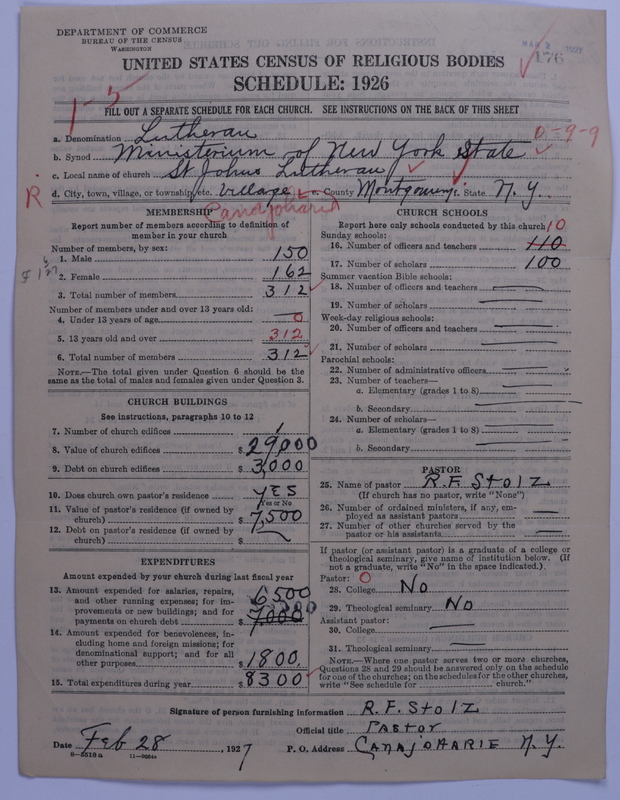 DEPARTMENT OF COMMERCE
BUREAU OF THE CENSUS
WASHINGTON
MAR 2 1927
176
UNITED STATES CENSUS OF RELIGIOUS BODIES
SCHEDULE: 1926
1-5
FILL OUT A SEPARATE SCHEDULE FOR EACH CHURCH. SEE INSTRUCTIONS ON THE BACK OF THIS SHEET
a. Denomination Lutheran
0-9-9
b. Synod Ministerium of New York State
c. Local name of church St Johns Lutheran
R
d. City, town, village, or township, etc. Village e. County Montgomery f. State N. Y.
Canajoharie
MEMBERSHIP
Report number of members according to definition of
member in your church
Number of members, by sex:
1. Male 150
2. Female 162
3. Total number of members 312
Number of members under and over 13 years old:
4. Under 13 years of age 0
5. 13 years old and over 312
6. Total number of members 312
NOTE.—The total given under Question 6 should be
same as the total of males and females given under Question 3.
CHURCH BUILDINGS
See instructions, paragraphs 10 to 12
7. Number of church edifices 1
8. Value of church edifices $ 29,000
9. Debt on church edifices $ 3,000
10. Does church own pastor's residence YES
Yes or No
11. Value of pastor's residence (if owned by
church) $ 7,500
12. Debt on pastor's residence (if owned by
church) $
EXPENDITURES
Amount expended by your church during last fiscal year
13. Amount expended for salaries, repairs,
and other running expenses; for im-
provements or new buildings; and for
payments on church debt $ 6500
7000
14. Amount expended for benevolences, in-
cluding home and foreign missions; for
denominational support; and for all
other purposes $ 1800
15. Total expenditures during year $ 8300
CHURCH SCHOOLS
Report here only schools conducted by this church
Sunday schools:
10
16. Number of officers and teachers 110
17. Number of scholars 100
Summer vacation Bible schools:
18. Number of officers and teachers
19. Number of scholars
Week-day religious schools:
20. Number of officers and teachers
21. Number of scholars
Parochial schools:
22. Number of administrative officers
23. Number of teachers—
a. Elementary (grades 1 to 8)
b. Secondary
24. Number of scholars—
a. Elementary (grades 1 to 8)
b. Secondary
PASTOR
25. Name of pastor R. F. Stolz
(If church has no pastor, write "None")
26. Number of ordained ministers, if any, em-
ployed as assistant pastors
27. Number of other churches served by the
pastor or his assistants
If pastor (or assistant pastor) is a graduate of a college or
theological seminary, give name of institution below. (If
not a graduate, write "No" in the space indicated.)
Pastor: 0
28. College No
29. Theological seminary No
Assistant pastor:
30. College
31. Theological seminary
NOTE.—Where one pastor serves two or more churches,
Questions 28 and 29 should be answered only on the schedule
for one of the churches; on the schedules for the other churches,
write "See schedule for church."
Signature of person furnishing information R. F. Stolz
Official title Pastor
Date Feb 28, 1927 P. O. Address CANAJOHARIE N. Y.
8-5518a 11-9664a